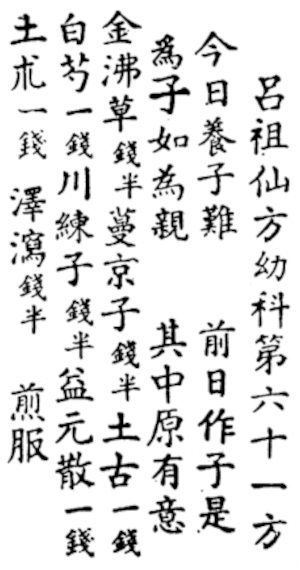 呂祖仙方幼科第六十一方
今日養子難　前日作子是
為子如為親　其中原有意
金沸草錢半蔓京子錢半土古一錢
白芍一錢川練子錢半益元散一錢
土朮一錢　澤瀉錢半　煎服